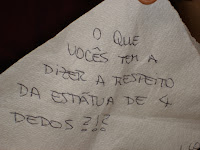 O QUE
VOCÊS TEM A
DIZER A RESPEITO
DA ESTÁTUA DE 4
DEDOS ?!?